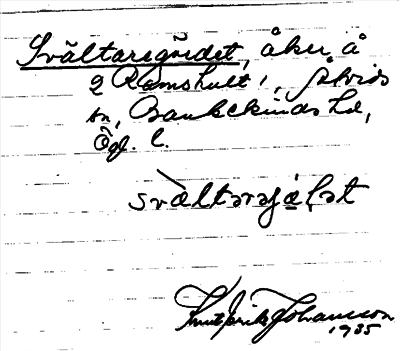 Svältaregärdet, åker å
g Ramshult 1, Åtvids
sn, Bankekinds hd,
Ögl. l.
svàltarəjąlət
Knut Erik Johansson
1935